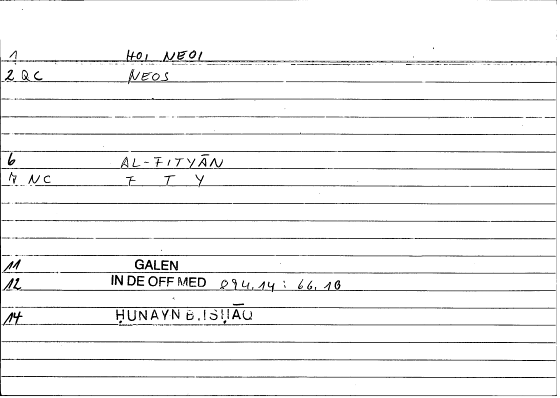 1 HOI NEOI
2 QC NEOS
6 AL-FITYĀN
7 NC F T Y
11 GALEN
12 IN DE OFF MED 094.14 : 66.18
14 ḤUNAYN B. ISḤĀQ